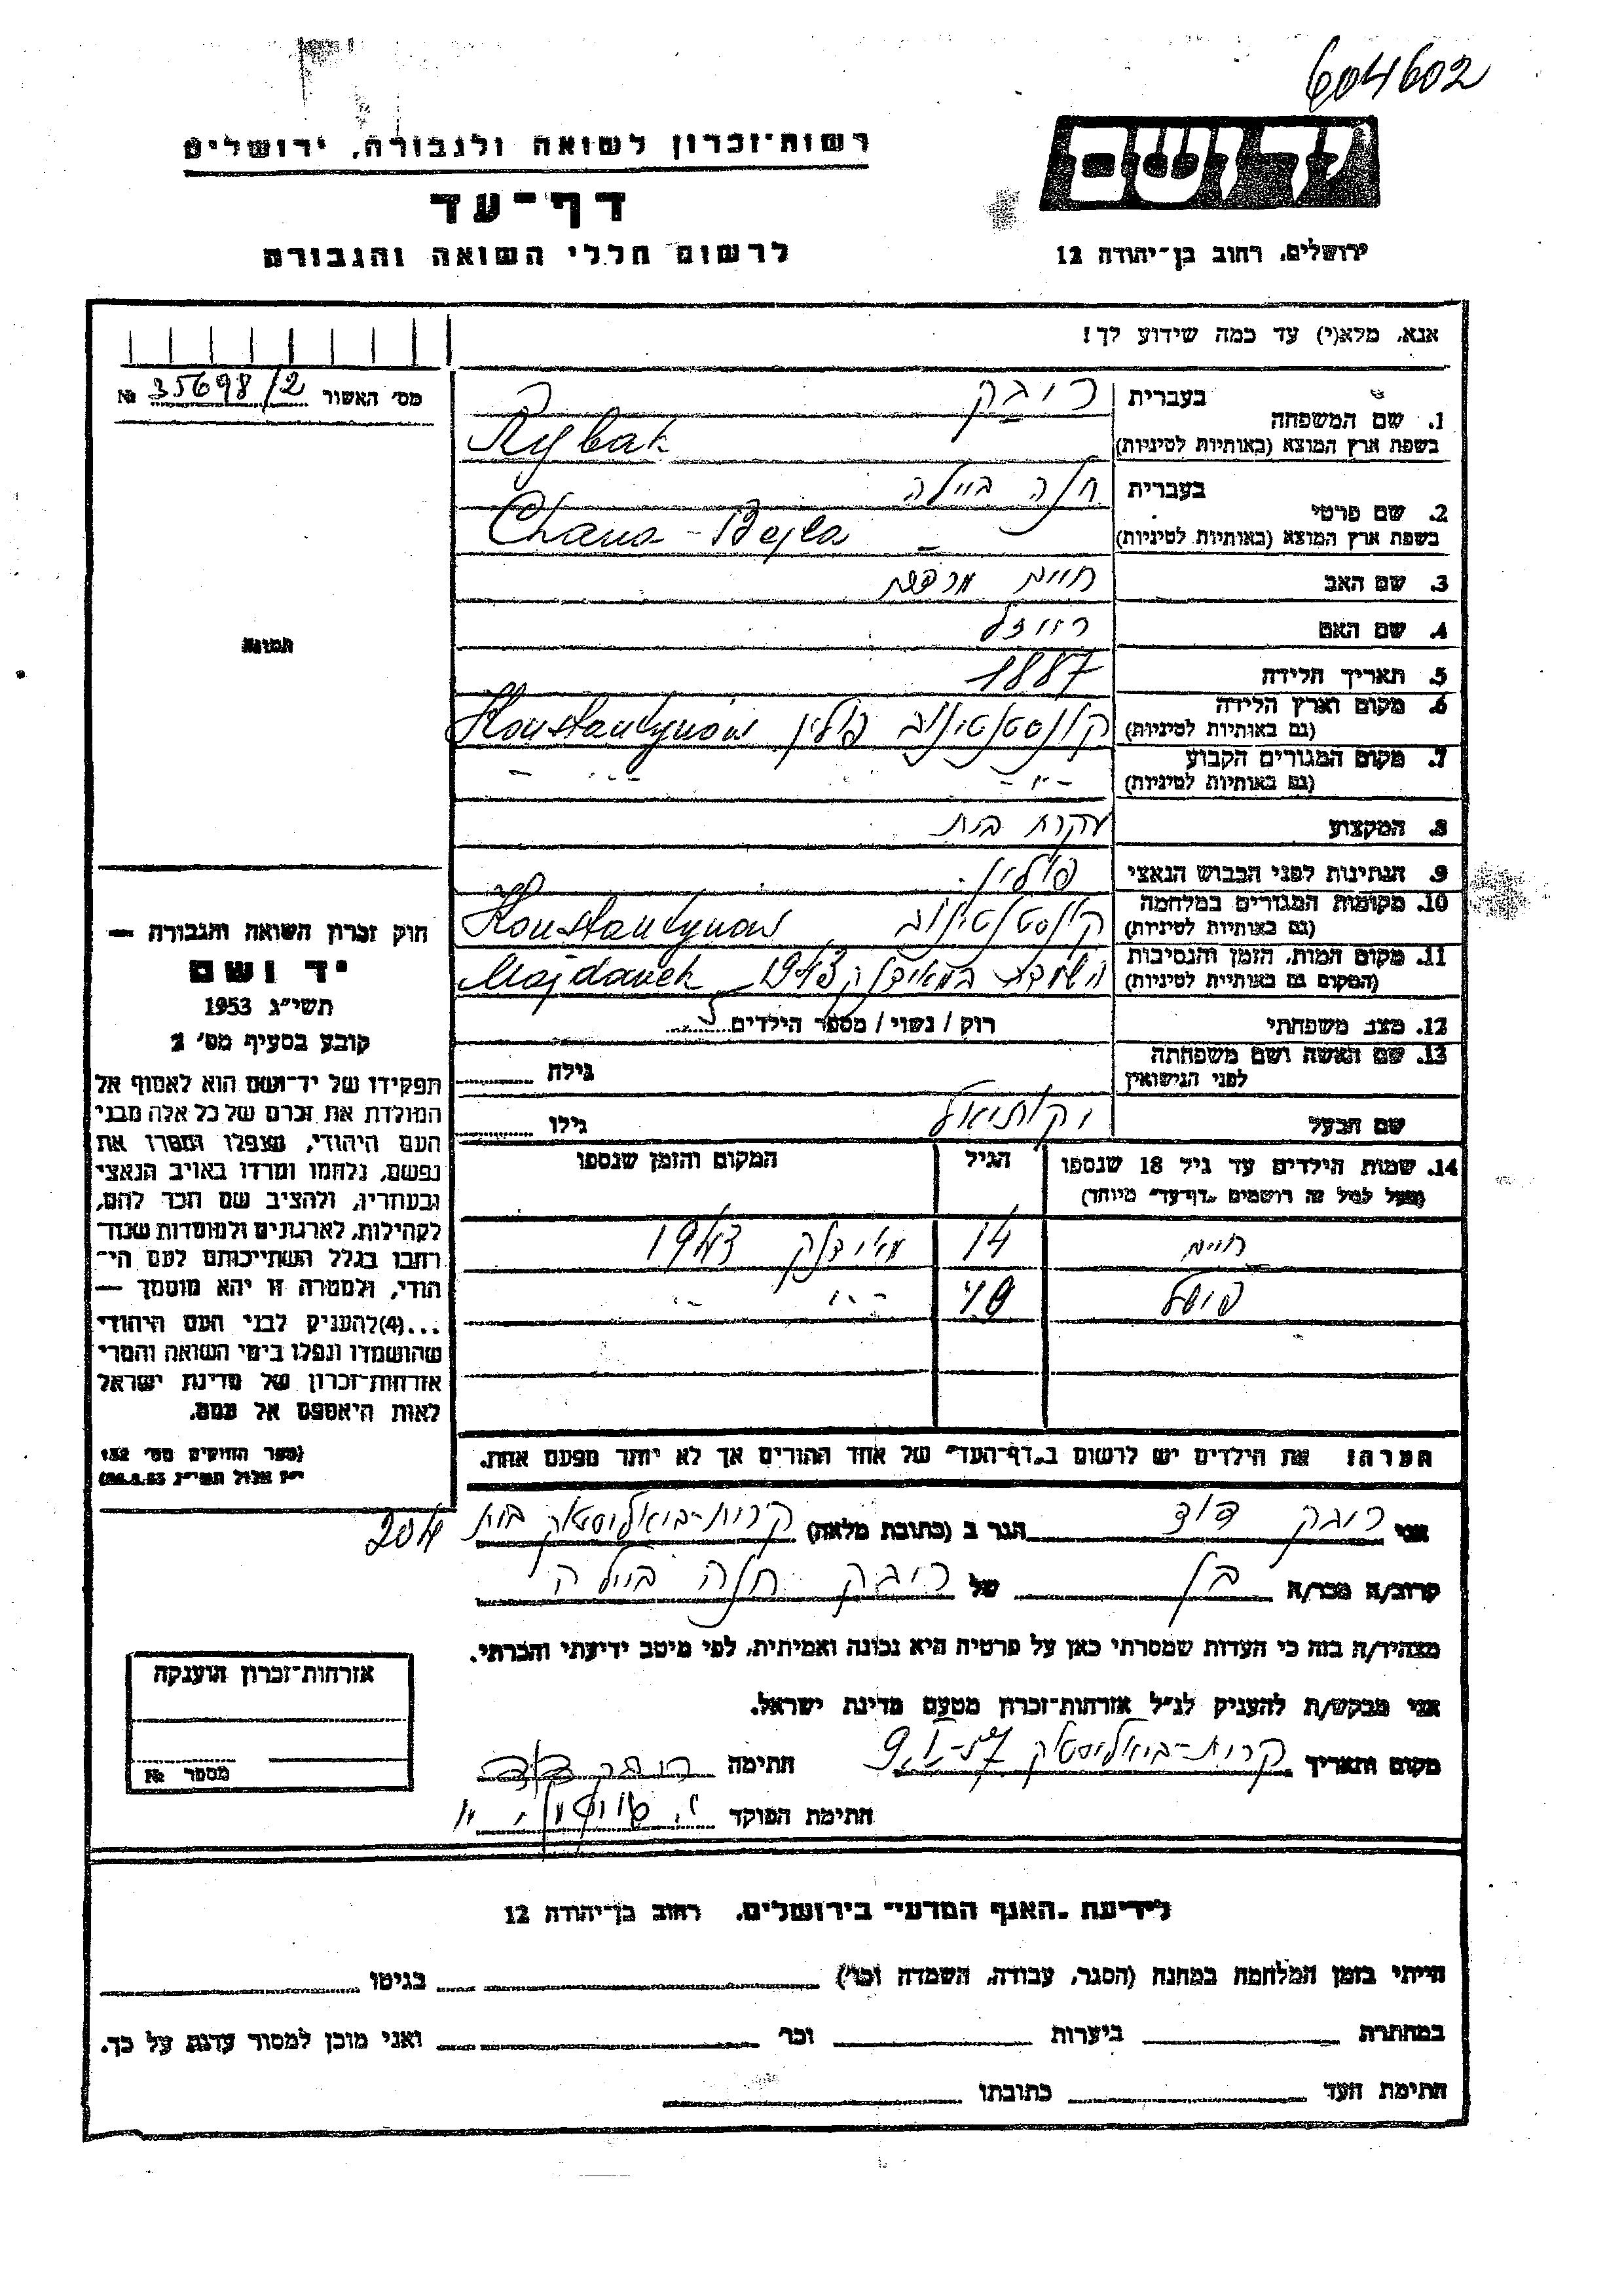 604602
רשות־זכרון לשואה ולגבורה, ירושלים
דף־עד
לרשום חללי השואה והגבורה
יד ושם
ירושלים, רחוב בן־יהודה 12
אנא, מלא(י) עד כמה שידוע לך!
מס׳ האשור № 35698/2
תמונה
1. שם המשפחה
בעברית ריבק
בשפת ארץ המוצא (באותיות לטיניות) Rybak
2. שם פרטי
בעברית חנה ביילה
בשפת ארץ המוצא (באותיות לטיניות) Chana-Bejla
3. שם האב חיים
4. שם האם רויזל
5. תאריך הלידה 1887
6. מקום וארץ הלידה
(גם באותיות לטיניות) קונסטנטינוב פולין Konstantynów
7. מקום המגורים הקבוע
(גם באותיות לטיניות) -״- -״-
8. המקצוע עקרת בית
9. הנתינות לפני הכבוש הנאצי פולין
10. מקומות המגורים במלחמה
(גם באותיות לטיניות) קונסטנטינוב Konstantynów
11. מקום המות, הזמן והנסיבות
(המקום גם באותיות לטיניות) במאידנק 1943 Majdanek
12. מצב משפחתי רוק / נשוי / מספר הילדים 5
13. שם האשה ושם משפחתה
לפני הנישואין גילה
שם הבעל יקותיאל גילו
14. שמות הילדים עד גיל 18 שנספו הגיל המקום והזמן שנספו
(מעל לגיל זה רושמים "דף־עד" מיוחד)
חיים 14 מאידנק 1943
-״- -״-
הערה: את הילדים יש לרשום ב"דף־העד" של אחד ההורים אך לא יותר מפעם אחת.
חוק זכרון השואה והגבורה —
יד ושם
תשי״ג 1953
קובע בסעיף מס׳ 2
תפקידו של יד־ושם הוא לאסוף אל
המולדת את זכרם של כל אלה מבני
העם היהודי, שנפלו ומסרו את
נפשם, נלחמו ומרדו באויב הנאצי
ובעוזריו, ולהציב שם וזכר להם,
לקהילות, לארגונים ולמוסדות שנח־
רבו בגלל השתייכותם לעם הי־
הודי, ולמטרה זו יהא מוסמך —
...(4) להעניק לבני העם היהודי
שהושמדו ונפלו בימי השואה והמרי
אזרחות־זכרון של מדינת ישראל
לאות היאספם אל עמם.
(ספר החוקים מס׳ 132
י״ז אלול תשי״ג 28.8.53)
אני ריבק דוד הגר ב (כתובת מלאה) קרית-ביאליסטוק בית 204
קרוב/ה מכר/ה בן של ריבק חנה ביילה
מצהיר/ה בזה כי העדות שמסרתי כאן על פרטיה היא נכונה ואמיתית, לפי מיטב ידיעתי והכרתי.
אני מבקש/ת להעניק לנ״ל אזרחות־זכרון מטעם מדינת ישראל.
מקום ותאריך קרית-ביאליסטוק 9.I.57 חתימה ריבק דוד
חתימת הפוקד
אזרחות־זכרון הוענקה
מספר №
לידיעת "האגף המדעי" בירושלים, רחוב בן־יהודה 12
הייתי בזמן המלחמה במחנה (הסגר, עבודה, השמדה וכו׳) בגיטו
במחתרת ביערות וכו׳ ואני מוכן למסור עדות על כך.
חתימת העד כתובתו